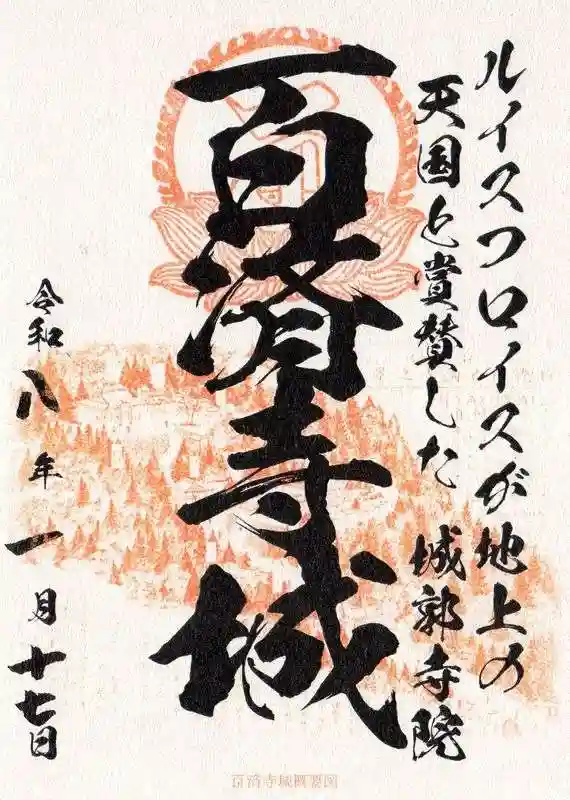 ルイスフロイスが地上の
天国と賞賛した 城郭寺院
百済寺城
令和八年 一月廿七日
百済寺城概要図